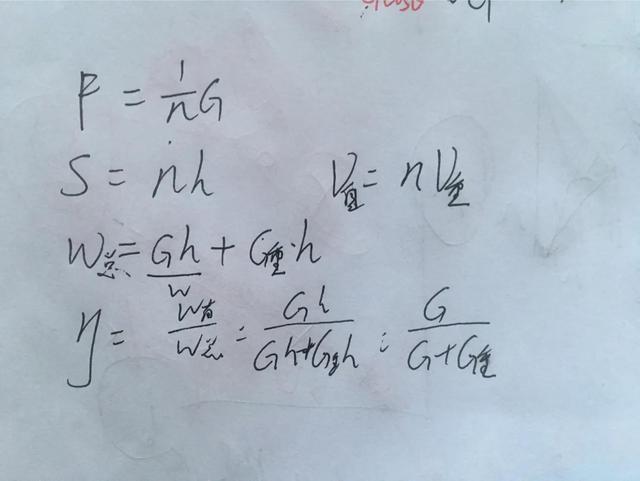 F = 1/n G
S = nh V直 = nV重
W总 = Gh + G重·h
W
η = W有/W总 = Gh/(Gh+G重h) = G/(G+G重)